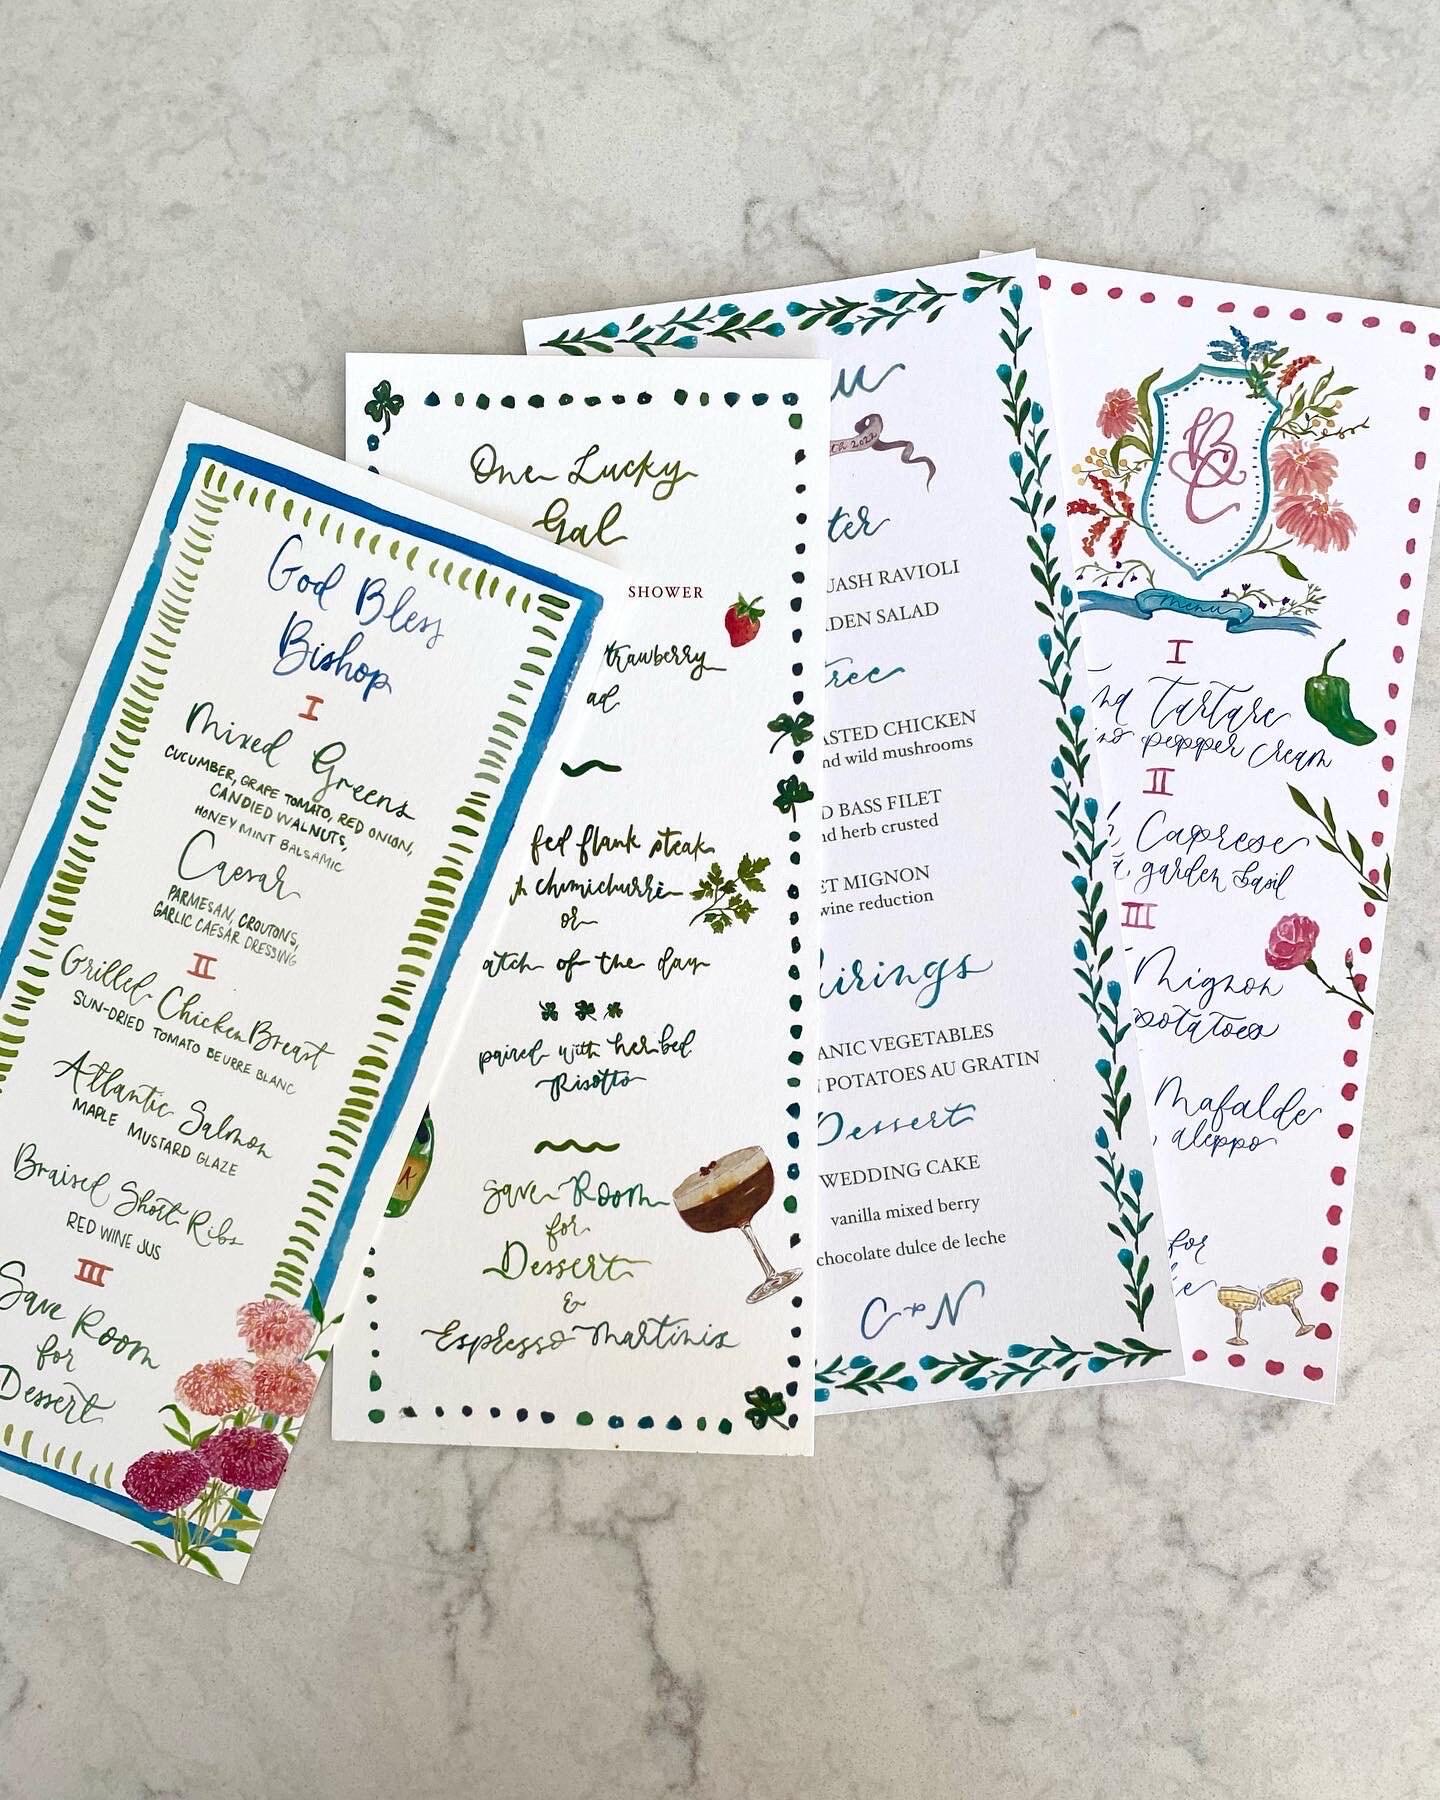 God Bless
Bishop
I
Mixed Greens
CUCUMBER, GRAPE TOMATO, RED ONION,
CANDIED WALNUTS,
HONEY MINT BALSAMIC
Caesar
PARMESAN, CROUTONS,
GARLIC CAESAR DRESSING
II
Grilled Chicken Breast
SUN-DRIED TOMATO BEURRE BLANC
Atlantic Salmon
MAPLE MUSTARD GLAZE
Braised Short Ribs
RED WINE JUS
III
Save Room
for
Dessert
One Lucky
Gal
SHOWER
trawberry
ad
fed flank steak
h chimichurri
or
atch of the day
paired with herbed
Risotto
Save Room
for
Dessert
&
Espresso Martinis
nu
th 2022
ter
UASH RAVIOLI
RDEN SALAD
tree
ASTED CHICKEN
nd wild mushrooms
D BASS FILET
nd herb crusted
ET MIGNON
wine reduction
airings
ANIC VEGETABLES
N POTATOES AU GRATIN
Dessert
WEDDING CAKE
vanilla mixed berry
chocolate dulce de leche
C & N
BC
Menu
I
na Tartare
no pepper cream
II
Caprese
garden basil
III
Mignon
potatoes
Mafalde
aleppo
for
ke